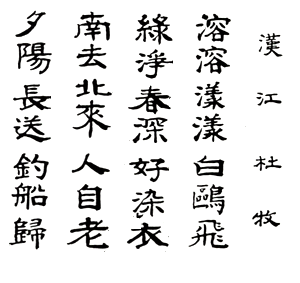 漢江 杜牧
溶溶漾漾白鷗飛
綠淨春深好染衣
南去北來人自老
夕陽長送釣船歸